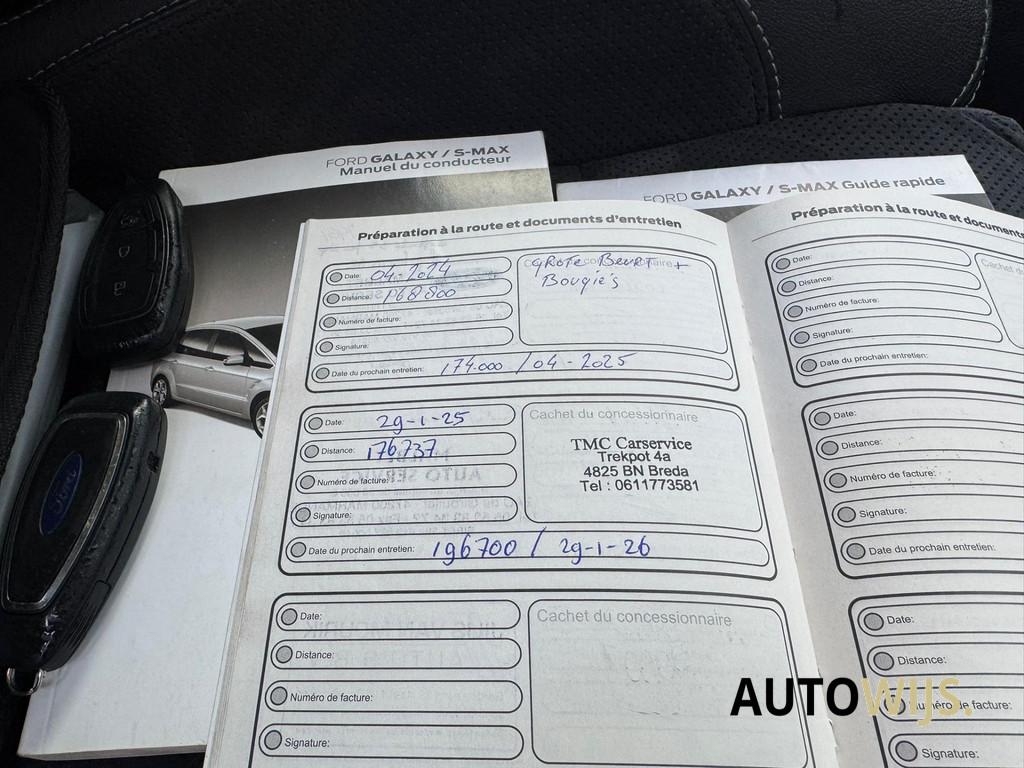 FORD GALAXY / S-MAX
Manuel du conducteur
FORD GALAXY / S-MAX Guide rapide
Ford
Préparation à la route et documents d'entretien
Date: 04-2024
Distance: 168 800
Numéro de facture:
Signature:
Grote Beurt +
Bougie's
Date du prochain entretien: 174.000 / 04 - 2025
Date: 29-1-25
Distance: 176.737
Numéro de facture:
Signature:
Cachet du concessionnaire
TMC Carservice
Trekpot 4a
4825 BN Breda
Tel : 0611773581
Date du prochain entretien: 196700 / 29-1-26
Date:
Distance:
Numéro de facture:
Signature:
Cachet du concessionnaire
Préparation à la route et documents
Date:
Distance:
Numéro de facture:
Signature:
Date du prochain entretien:
Cachet du
Date:
Distance:
Numéro de facture:
Signature:
Date du prochain entretien:
Date:
Distance:
Numéro de facture:
Signature:
AUTOWIJS.